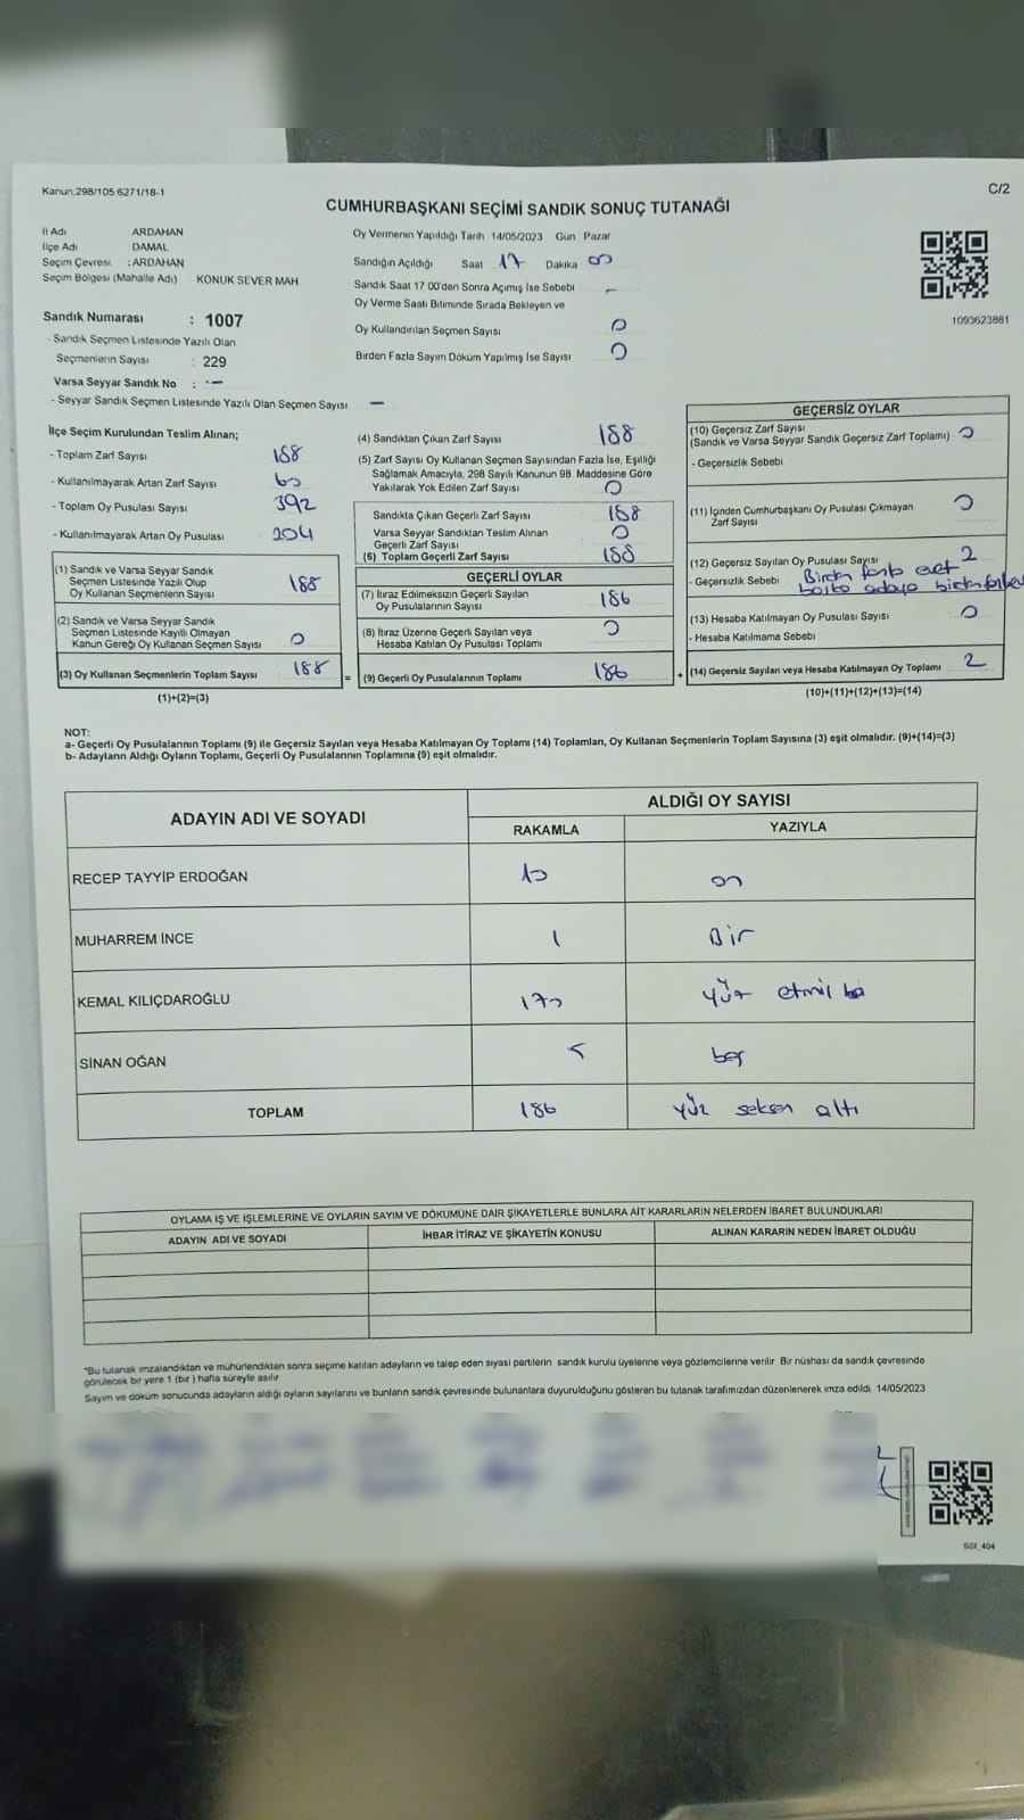 Kanun:298/105 6271/18-1
C/2
CUMHURBAŞKANI SEÇİMİ SANDIK SONUÇ TUTANAĞI
İl Adı ARDAHAN
İlçe Adı DAMAL
Seçim Çevresi : ARDAHAN
Seçim Bölgesi (Mahalle Adı) KONUK SEVER MAH
Sandık Numarası : 1007
- Sandık Seçmen Listesinde Yazılı Olan
Seçmenlerin Sayısı : 229
Varsa Seyyar Sandık No : -
- Seyyar Sandık Seçmen Listesinde Yazılı Olan Seçmen Sayısı -
Oy Vermenin Yapıldığı Tarih 14/05/2023 Gün Pazar
Sandığın Açıldığı Saat 17 Dakika 00
Sandık Saat 17 00'den Sonra Açımış İse Sebebi -
Oy Verme Saati Bitiminde Sırada Bekleyen ve
Oy Kullandırılan Seçmen Sayısı 0
Birden Fazla Sayım Döküm Yapılmış İse Sayısı 0
1093623881
İlçe Seçim Kurulundan Teslim Alınan;
- Toplam Zarf Sayısı 188
- Kullanılmayarak Artan Zarf Sayısı
- Toplam Oy Pusulası Sayısı 392
- Kullanılmayarak Artan Oy Pusulası 204
(1) Sandık ve Varsa Seyyar Sandık
Seçmen Listesinde Yazılı Olup
Oy Kullanan Seçmenlerin Sayısı 188
(2) Sandık ve Varsa Seyyar Sandık
Seçmen Listesinde Kayıtlı Olmayan
Kanun Gereği Oy Kullanan Seçmen Sayısı 0
(3) Oy Kullanan Seçmenlerin Toplam Sayısı 188
(1)+(2)=(3)
(4) Sandıktan Çıkan Zarf Sayısı 188
(5) Zarf Sayısı Oy Kullanan Seçmen Sayısından Fazla İse, Eşitliği
Sağlamak Amacıyla, 298 Sayılı Kanunun 98. Maddesine Göre
Yakılarak Yok Edilen Zarf Sayısı 0
Sandıkta Çıkan Geçerli Zarf Sayısı 188
Varsa Seyyar Sandıktan Teslim Alınan
Geçerli Zarf Sayısı 0
(6) Toplam Geçerli Zarf Sayısı 188
GEÇERLİ OYLAR
(7) İtiraz Edilmeksizin Geçerli Sayılan
Oy Pusulalarının Sayısı 186
(8) İtiraz Üzerine Geçerli Sayılan veya
Hesaba Katılan Oy Pusulası Toplamı 0
= (9) Geçerli Oy Pusulalarının Toplamı 186
GEÇERSİZ OYLAR
(10) Geçersiz Zarf Sayısı
(Sandık ve Varsa Seyyar Sandık Geçersiz Zarf Toplamı) 0
- Geçersizlik Sebebi
(11) İçinden Cumhurbaşkanı Oy Pusulası Çıkmayan
Zarf Sayısı 0
(12) Geçersiz Sayılan Oy Pusulası Sayısı 2
- Geçersizlik Sebebi Birden fazla evet
(13) Hesaba Katılmayan Oy Pusulası Sayısı 0
- Hesaba Katılmama Sebebi
+ (14) Geçersiz Sayılan veya Hesaba Katılmayan Oy Toplamı 2
(10)+(11)+(12)+(13)=(14)
NOT:
a- Geçerli Oy Pusulalarının Toplamı (9) ile Geçersiz Sayılan veya Hesaba Katılmayan Oy Toplamı (14) Toplamları, Oy Kullanan Seçmenlerin Toplam Sayısına (3) eşit olmalıdır. (9)+(14)=(3)
b- Adayların Aldığı Oyların Toplamı, Geçerli Oy Pusulalarının Toplamına (9) eşit olmalıdır.
ADAYIN ADI VE SOYADI
ALDIĞI OY SAYISI
RAKAMLA YAZIYLA
RECEP TAYYİP ERDOĞAN 10 on
MUHARREM İNCE 1 Bir
KEMAL KILIÇDAROĞLU 170 yüz etmiş
SİNAN OĞAN 5 beş
TOPLAM 186 yüz seksen altı
OYLAMA İŞ VE İŞLEMLERİNE VE OYLARIN SAYIM VE DÖKÜMÜNE DAİR ŞİKAYETLERLE BUNLARA AİT KARARLARIN NELERDEN İBARET BULUNDUKLARI
ADAYIN ADI VE SOYADI İHBAR İTİRAZ VE ŞİKAYETİN KONUSU ALINAN KARARIN NEDEN İBARET OLDUĞU
*Bu tutanak imzalandıktan ve mühürlendikten sonra seçime katılan adayların ve talep eden siyasi partilerin sandık kurulu üyelerine veya gözlemcilerine verilir. Bir nüshası da sandık çevresinde
görülecek bir yere 1 (bir) hafta süreyle asılır
Sayım ve döküm sonucunda adayların aldığı oyların sayılarını ve bunların sandık çevresinde bulunanlara duyurulduğunu gösteren bu tutanak tarafımızdan düzenlenerek imza edildi. 14/05/2023